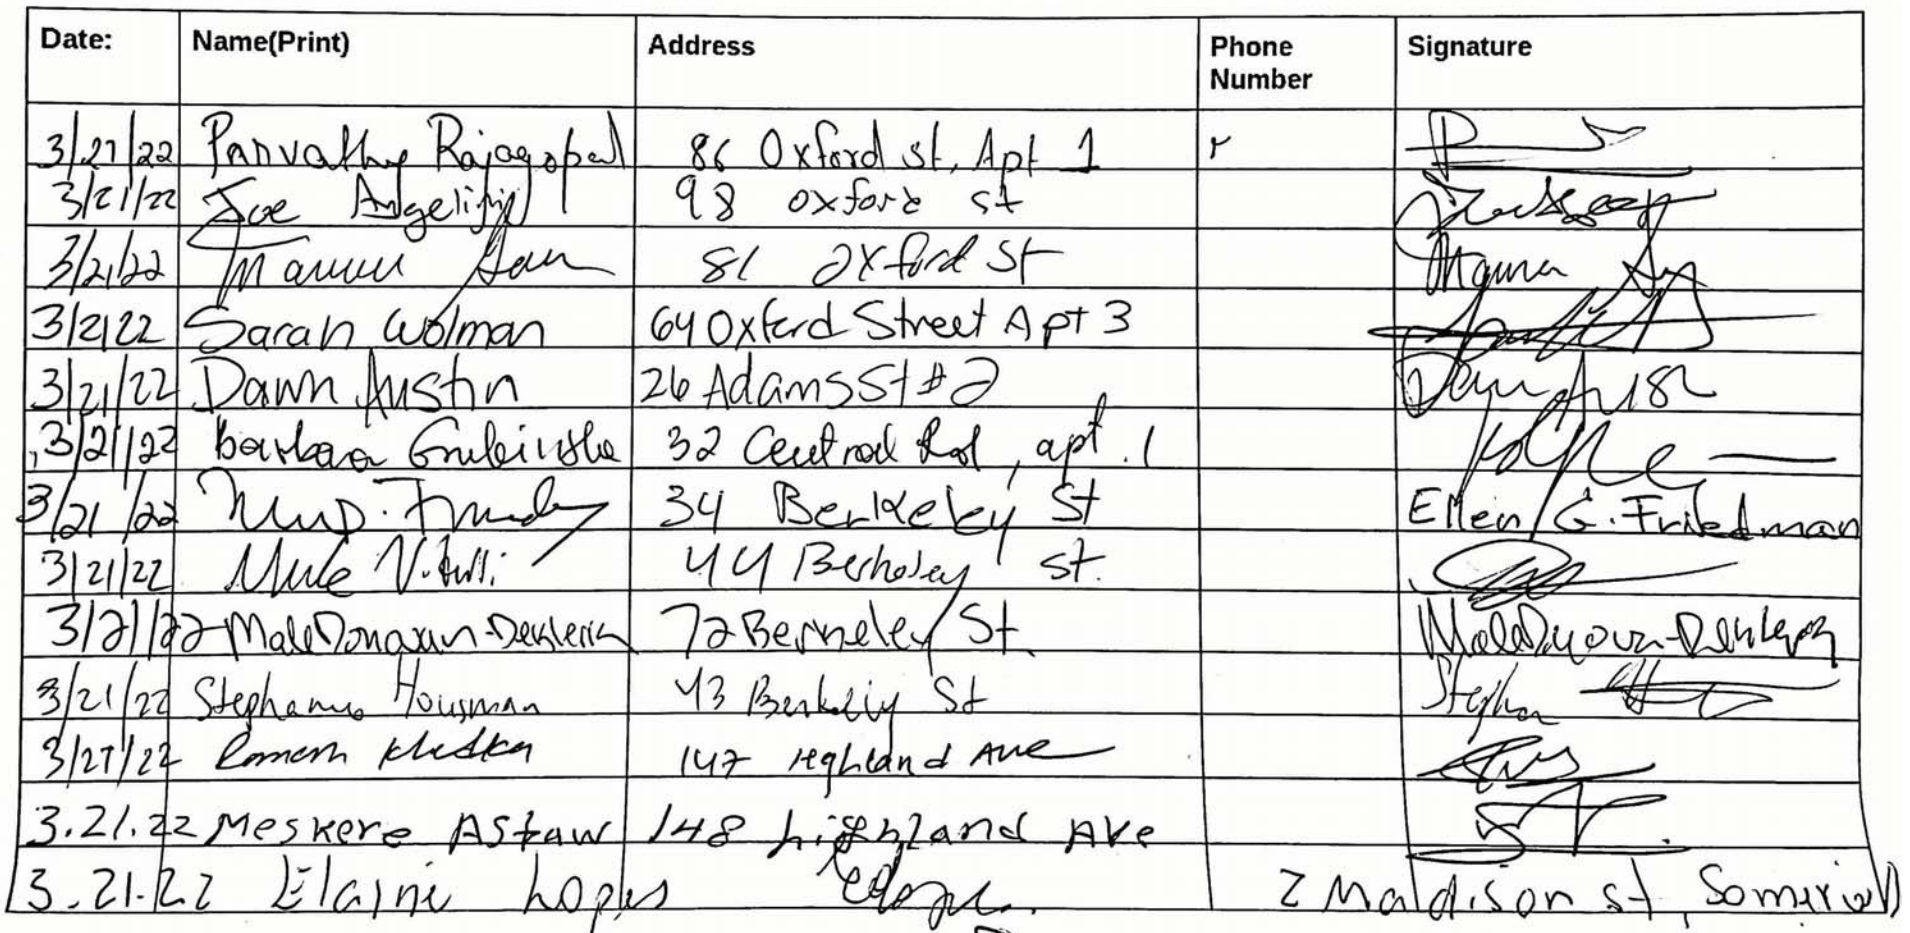 Date: Name(Print) Address Phone Number Signature
3/21/22 Parvathy Rajagopal 86 Oxford st, Apt 1
3/21/22 Joe Angelini 98 oxford st
3/21/22 81 Oxford St Maura
3/2/22 Sarah Wolman 64 Oxford Street Apt 3
3/21/22 Dawn Austin 26 Adams St #2 Dawn Austin
3/21/22 Barbara 32 Central Rd, apt. 1
3/21/22 34 Berkeley St Ellen G. Friedman
3/21/22 Mike 44 Berkeley St.
3/21/22 72 Berkeley St
3/21/22 Stephanie Housman 43 Berkeley St
3/21/22 147 Highland Ave
3.21.22 Meskere Astaw 148 highland Ave
3.21.22 Elaine Lopes 2 Maldison st, Somervill